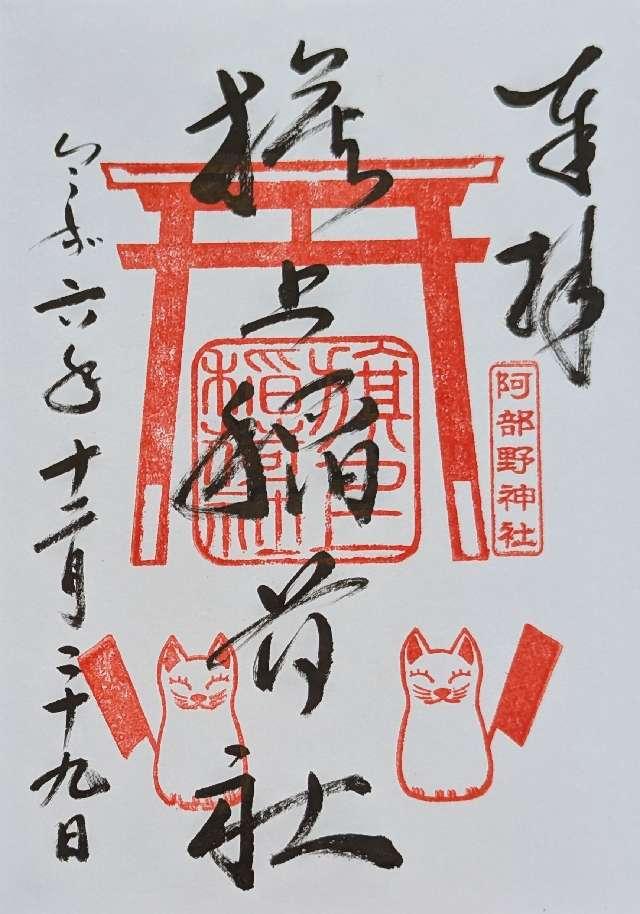 奉拝
阿部野神社
旗上稲荷社
旗上稲荷社
令和六年十二月二十九日